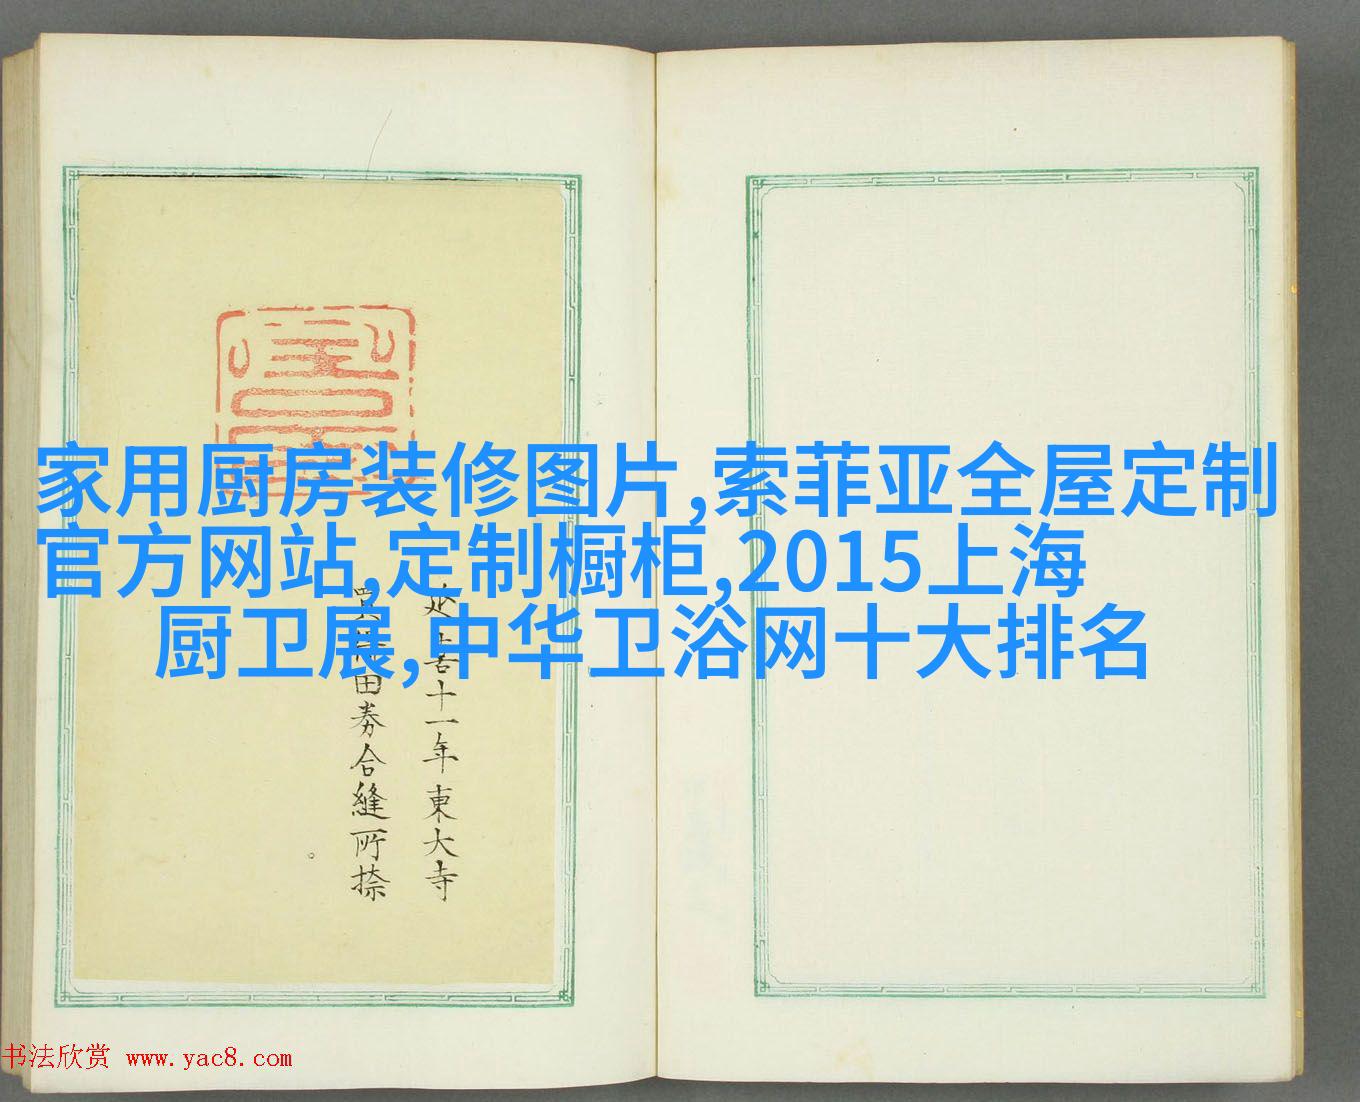 家用厨房装修图片,索菲亚全屋定制
官方网站,定制橱柜,2015上海
厨卫展,中华卫浴网十大排名
延喜十一年東大寺
田券合縫所捺
书法欣赏 www.yac8.com